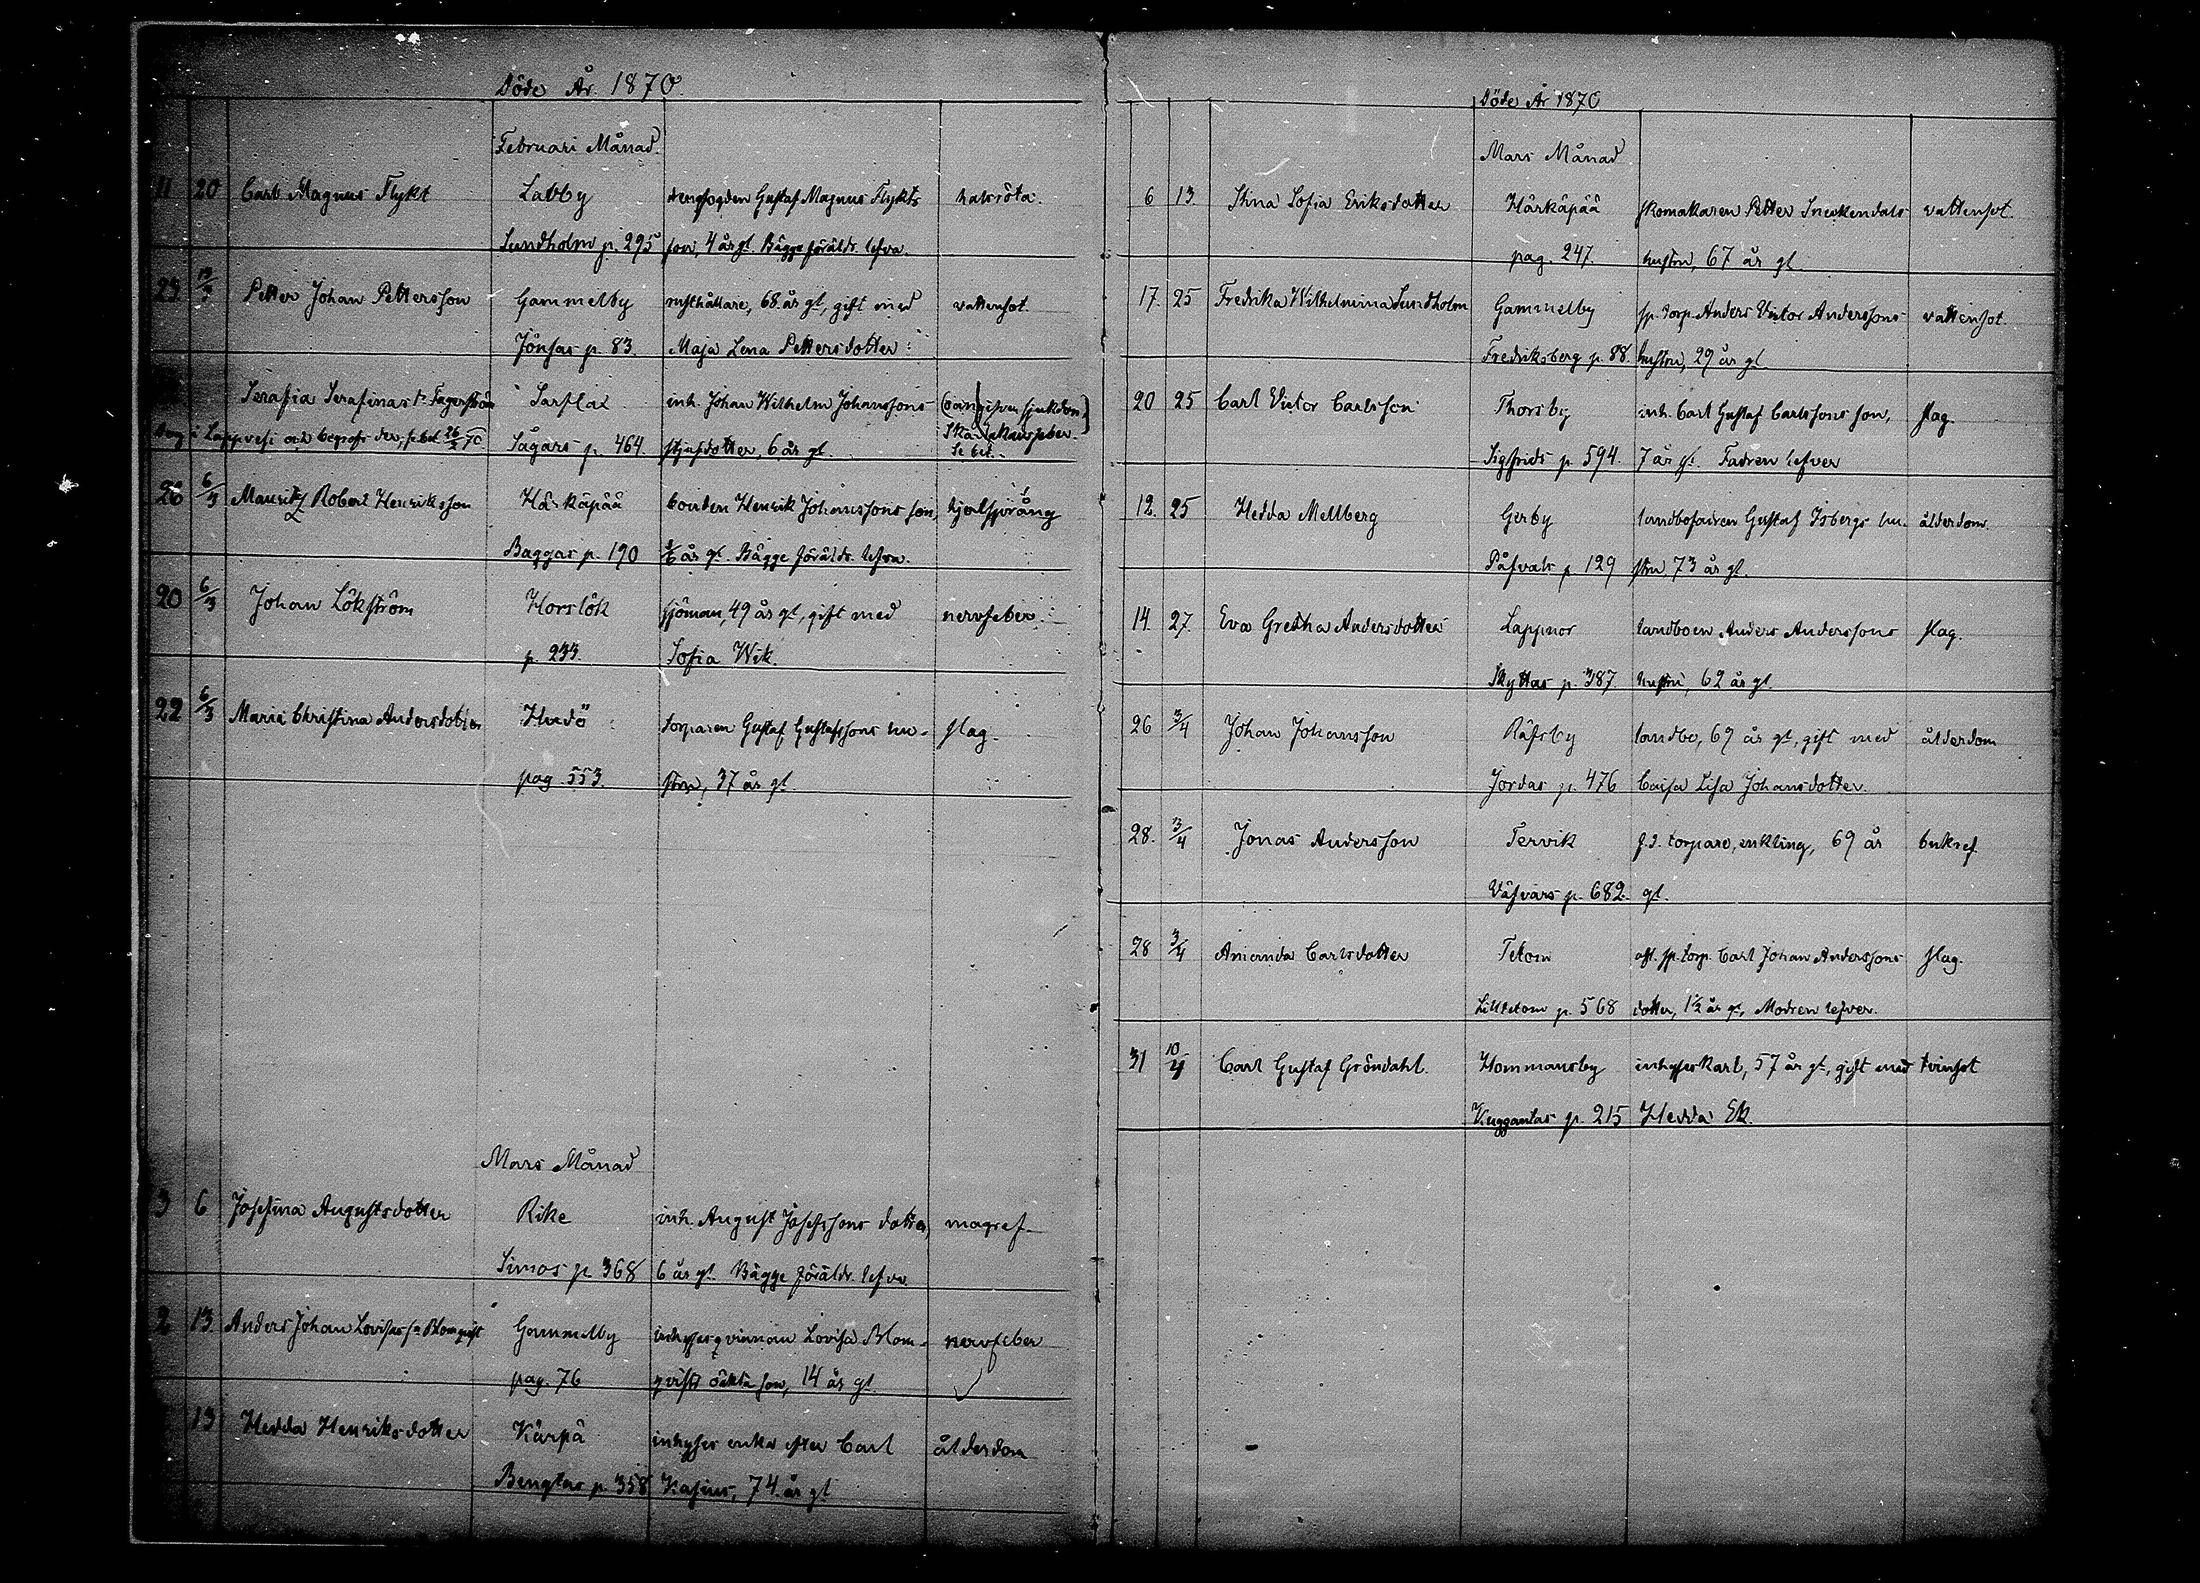 Döde År 1870.
Februari Månad.
11 20 Carl Magnus Flykt Labby drengfogden Gustaf Magnus Flykts halsröta.
Sundholm p. 295 son, 4 år gl. Bägge föräldr. lefva.
23 13/3 Petter Johan Pettersson Gammelby rusthållare, 68 år gl, gift med vattensot.
Jönsas p. 83. Maja Lena Pettersdotter.
Serafia Serafinas dr Fagerström Sarflax inh. Johan Wilhelm Johanssons
i Lappvesi och begrofs der, s. bet. 26/2 70. Sågars p. 464. styfdotter, 6 år gl. Skarlakansfeber.
Se bet.
26 6/3 Mauritz Robert Henriksson Härkäpää bonden Henrik Johanssons son, hjertsprång
Baggas p. 190 år gl. Bägge föräldr. lefva.
20 6/3 Johan Lökström Horslök sjöman, 49 år gl, gift med nervfeber.
p. 233. Sofia Wik.
22 6/3 Maria Christina Andersdotter Hudö torparen Gustaf Gustafssons hu- slag.
pag. 553. stru, 37 år gl
Mars Månad
3 6 Josefina Augustsdotter Rike inh. August Josefssons dotter, magref.
Simos p. 368 6 år gl. Bägge föräldr. lefva.
2 13 Anders Johan Lovisas sn Blomqvist Gammelby inhysesqvinnan Lovisa Blom- nervfeber
pag. 76 qvists oäkta son, 14 år gl
13 Hedda Henriksdotter Kärpä inhyses enka efter Carl ålderdom
Bengtas p. 358 Kasius, 74 år gl
Döde År 1870
Mars Månad
6 13 Stina Sofia Eriksdotter Härkäpää skomakaren Petter Sneckendals vattensot.
pag. 247. hustru, 67 år gl.
17. 25 Fredrika Wilhelmina Sundholm Gammelby sp. torp. Anders Victor Anderssons vattensot.
Fredriksberg p. 88. hustru, 29 år gl
20 25 Carl Victor Carlsson Thorsby inh. Carl Gustaf Carlssons son, slag.
Sigfrids p. 594. 7 år gl. Fadren lefver
12. 25 Hedda Mellberg Gerby landbofadren Gustaf Isbergs hu- ålderdom.
Påfvals p. 129 stru 73 år gl.
14. 27. Eva Gretha Andersdotter Lappnor landboen Anders Anderssons slag.
Skyttas p. 387. hustru, 62 år gl.
26 3/4 Johan Johansson Räfsby landbo, 69 år gl, gift med ålderdom
Jordas p. 476 Caisa Lisa Johansdotter.
28. 3/4 Jonas Andersson Tervik f.d. torpare, enkling, 69 år bukref
Väfvars p. 682. gl.
28 3/4 Amanda Carlsdotter Tetom afl. sp. torp. Carl Johan Anderssons slag.
Lilltetom p. 568 dotter, 1 1/2 år gl, Modren lefver.
31 10/4 Carl Gustaf Gröndahl. Hommansby inhyseskarl, 57 år gl, gift med tvinsot
Kuggantas p. 215 Hedda Ek.